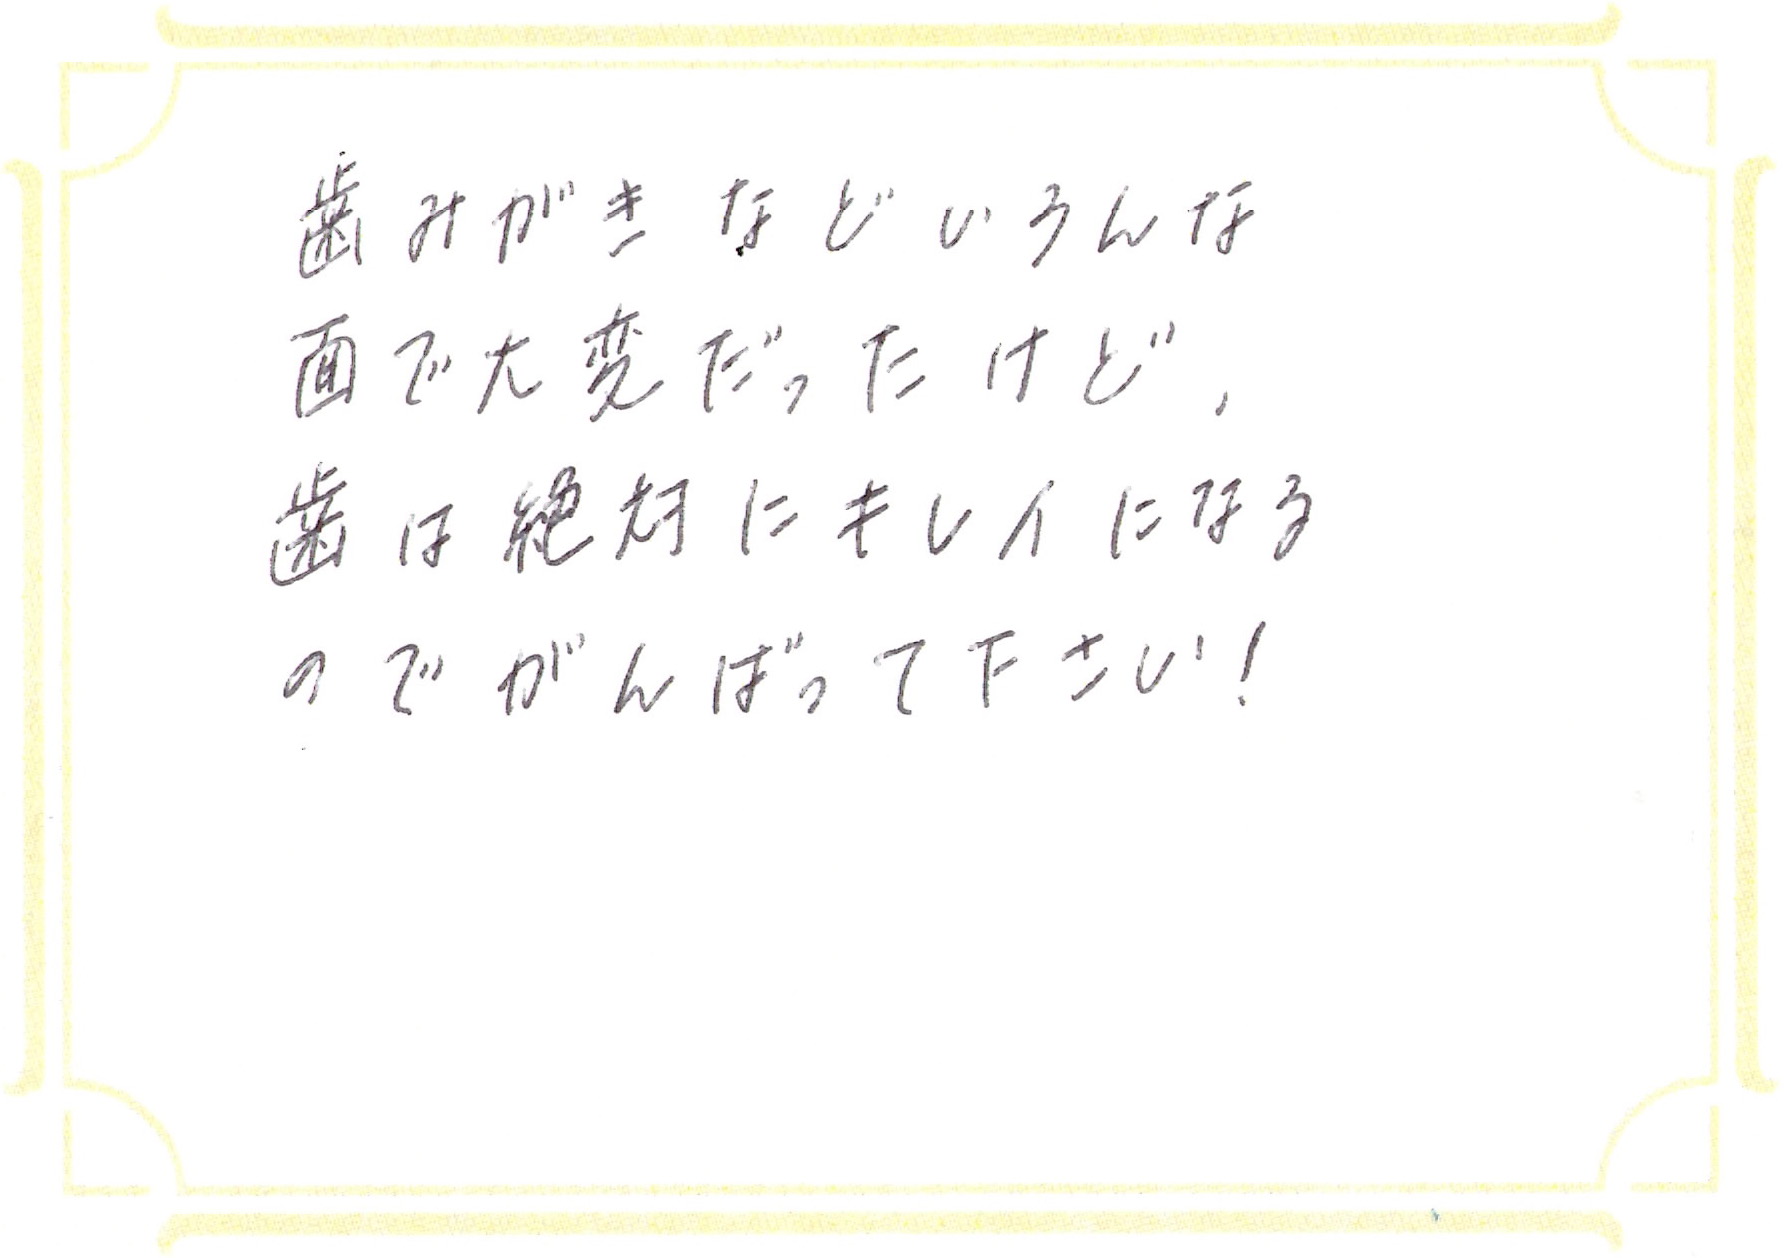 歯みがきなどいろんな
面で大変だったけど、
歯は絶対にキレイになる
のでがんばって下さい!